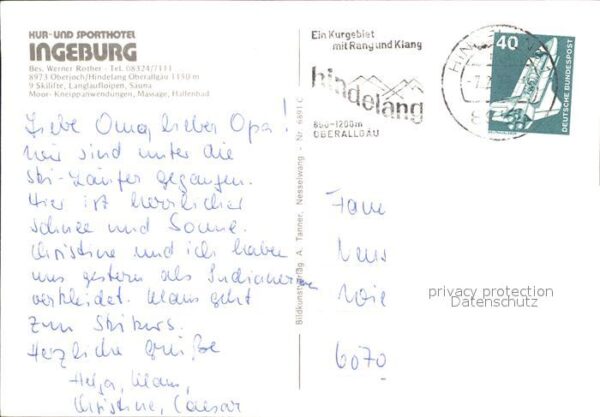 KUR- UND SPORTHOTEL
INGEBURG
Bes. Werner Rother - Tel. 08324/7111
8973 Oberjoch/Hindelang Oberallgäu 1150 m
9 Skilifte, Langlaufloipen, Sauna
Moor- Kneippanwendungen, Massage, Hallenbad
Liebe Oma, lieber Opa!
Wir sind unter die
Ski-Läufer gegangen.
Hier ist herrlicher
Schnee und Sonne.
Christine und ich haben
uns gestern als Indianer
verkleidet. Klaus geht
zum Skikurs.
Herzliche Grüße
Helga, Klaus,
Christine, Caesar
Bildkunstverlag A. Tanner, Nesselwang - Nr. 6891 C
Ein Kurgebiet
mit Rang und Klang
hindelang
850-1200m
OBERALLGÄU
40
DEUTSCHE BUNDESPOST
Fam
6070
privacy protection
Datenschutz